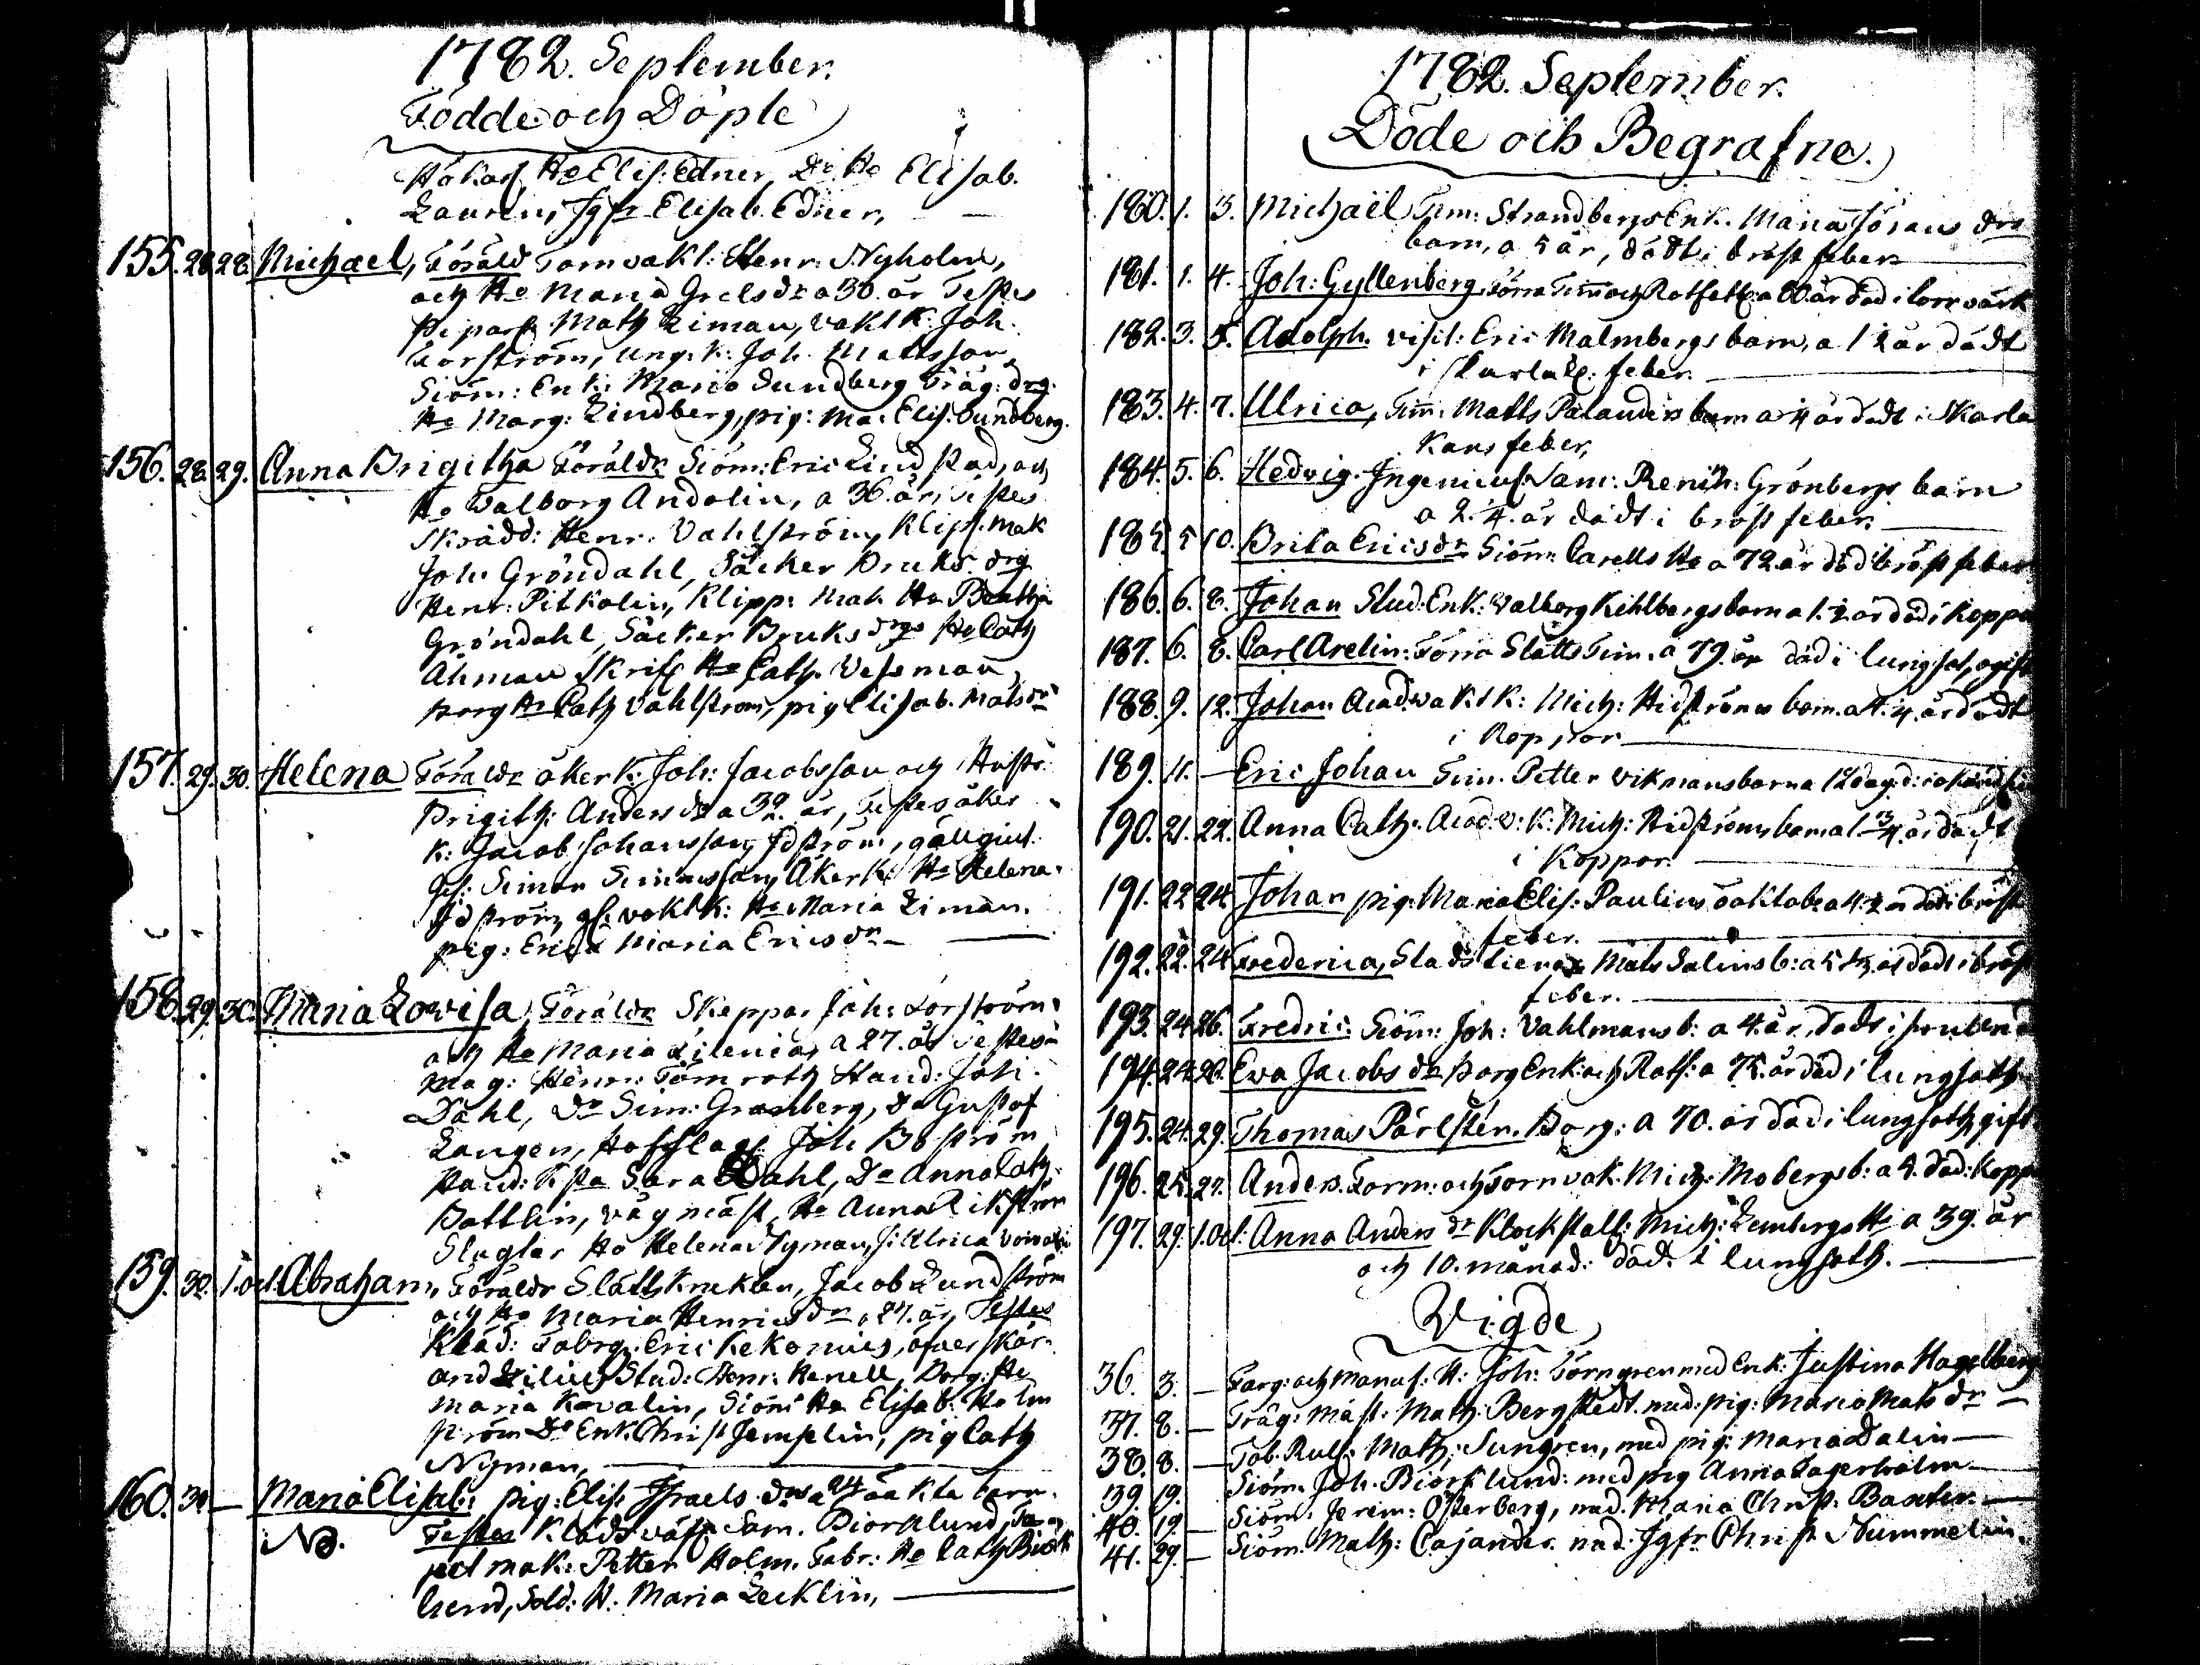 1782. September.
Födde och Döpte
Hu Elis. Edner, Do Hu Elisab.
Lauren, Jgfr Elisab. Edner,
155. 28 28. Michael, Föräld Tornvakt: Henr. Nyholm,
och Hu Maria Grelsdr a 30. år Testes
Math Ziman, vakt K. Joh.
Forström, ung. K: Joh. Mattsson,
Siöm: Enk: Maria Sundberg Träg: drg.
Hu Marg: Lindberg, pig: Ma: Elis: Sundberg.
156. 28. 29. Anna Brigitha Föräldr Siöm: Eric Lindstad, och
Hu Walborg Andolin, a 36. år, Testes
Skrädd: Henr. Vahlström, Klipp. mak
Joh Gröndahl, Såcker Bruks drg
Henr: Pitkolin, Klipp: Mak Hu Beatha
Gröndahl, Såcker Bruks drgs Hu Cath
Åhman Hu Cath. Vessman,
borg Hu Cath Vahlström, pig Elisab. Matsdr
157. 29. 30. Helena Föräldr åker K: Joh: Jacobsson och Hustr:
Brigith: Andersdr a 32. år, Testes åker
K: Jacob Johansson Idström, gällgiut.
Ges: Simon Simonsson, Åker K: Hu Helena
Idström, vakt K: Hu Maria Ziman.
pig: Maria Ericsdr
158. 29. 30. Maria Lovisa, Föräldr Skeppar Joh: Forström
och Hu Maria Lilenia, a 27. år Testes
Mag: Henr: Tömroth Hand: Joh:
Dahl, Do Sim: Granberg, Do Gustof
Langen, Hofslag Joh Boström
Hand: Sara Dahl, Do Anna Cath.
Bottlin, vägmäst, Hu Anna Rikström
Slagtar Hu Helena Nyman, J: Ulrica
159. 30. 1. oct. Abraham, Föräldr Slåttsknekten, Jacob Lundström
och Hu Maria Henricsdr a 27. år, Testes
Kläd: Fabrq. Eric Kekonius, öfverskär-
and Stud: Henr: Renell, Borg: Hu
Maria Kovalin, Siöm Hu Elisab: Holm
ström Do Enk. Christ Jemplin, pig Cath
Nyman,
160. 30 — Maria Elisab: pig: Elis: Israelsdrs a 24 oäkta barn.
No. Testes Klädsväfv Sam. Biorklund,
mak: Petter Holm. Fabr: Hu Cath Biörk
lund, Sold: H. Maria Lecklin,
1782. September.
Döde och Begrafne.
180. 1. 3. Michaël Tim: Strandbergs Enk. Maria Jörans drs
barn, a 5 år, dödt i bröst feber
181. 1. 4. Joh: Gyllenberg, Förra Timm och Rotfatt: a 60 år död i torrvärk
182. 3. 5. Adolph. visit: Eric Malmbergs barn, a 1 ½ år dödt
i skarlak: feber.
183. 4. 7. Ulrica, Tim: Matts Palanders barn a ¼ år dödt i skarla
kans feber,
184. 5. 6. Hedvig. Ingenieurs Sam: Grönbergs barn
a 2. ¼. år dödt i bröst feber.
185. 5 10. Brita Ericsdr Siöm: Carells Hu a 72 år död i bröst feber
186. 6. 8. Johan Stud: Enk: Walborg Kihlbergs barn a 1. ½ år död i koppo
187. 6. 8. Carl Arelin: Förra Slåtts Tim. a 79. år död i lungsot, ogift
188. 9. 12. Johan Acad. vakt K: Mich: Hidströms barn. a 4. ¼. år dödt
i koppor
189. 11. — Eric Johan Tim. Petter Vikmans barn a 12 dag. d:
190. 21. 22. Anna Cath. Acad. v: K: Mich: Hidströms barn a 1 ¾. år dödt
i koppor.
191. 22 24. Johan pig: Maria Elis: Paulins oäkta b: a 4 ½ år död i bröst
feber.
192. 22. 24 Frederica, Stads Mats Salins b: a 5 ½ år dödt i bröst
feber.
193. 24 26. Fredric: Siöm: Joh: Vahlmans b: a 4. år, dödt i
194. 24 26. Eva Jacobsdr borg Enk: och Rotf: a 75. år död i lungsoth
195. 24. 29. Thomas Pärlsten. Borg: a 70. år död i lungsoth, gift
196. 25. 27. Anders. Torm: och Tornvak. Mich: Mobergs b: a 5. död: koppo
197. 29. 1. Oct: Anna Andersdr Klockstall: Mich: Lembergs Hu a 39 år
och 10. månad: död. i lungsoth.
Vigde
36. 3. — Farg: och Manuf: H: Joh: Törngren med Enk: Justina Hagelberg
37. 8. — Träg: mäst: Math: Bergstedt. med. pig: Maria Mats dr —
38. 8. — Tob: Rull: Math: Sungren, med pig: Maria Dalin —
39. 19. Siöm. Joh. Biörklund: med pig Anna Lagerholm —
40. 19. — Siöm: Jerem: Österberg, med. Maria Christ: Baxter. —
41. 29. — Siöm. Math: Cajander. med. Jgfr Christ Nummelin.